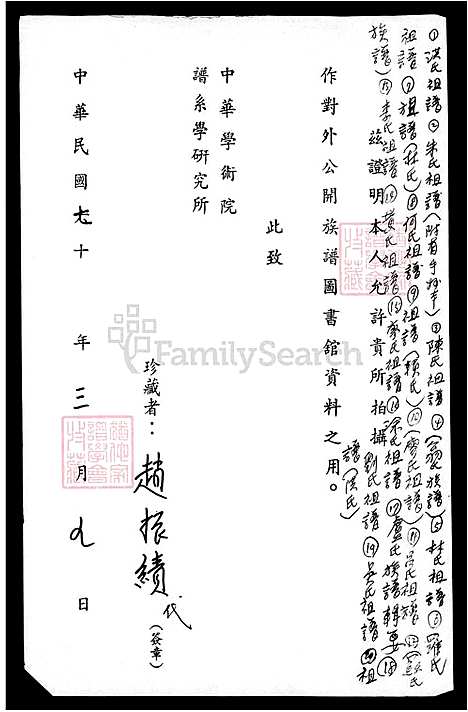 ①洪氏祖譜②朱氏祖譜(附有手抄本)③陳氏祖譜④(翁氏族譜)⑤杜氏祖譜⑥羅氏
祖譜⑦祖譜(杜氏)⑧何氏祖譜⑨祖譜(賴氏)⑩廖氏祖譜⑪呂氏祖譜
族譜)⑬李氏祖譜⑭黃氏祖譜⑮廖氏祖譜⑯涂氏祖譜⑰盧氏族譜輯要⑱
劉氏祖譜⑲吳氏祖譜⑳祖
譜(洪氏)
茲證明本人允許貴所拍攝
作對外公開族譜圖書館資料之用。
此致
中華學術院
譜系學研究所
珍藏者：趙振績代(簽章)
中華民國七十年三月九日
FamilySearch